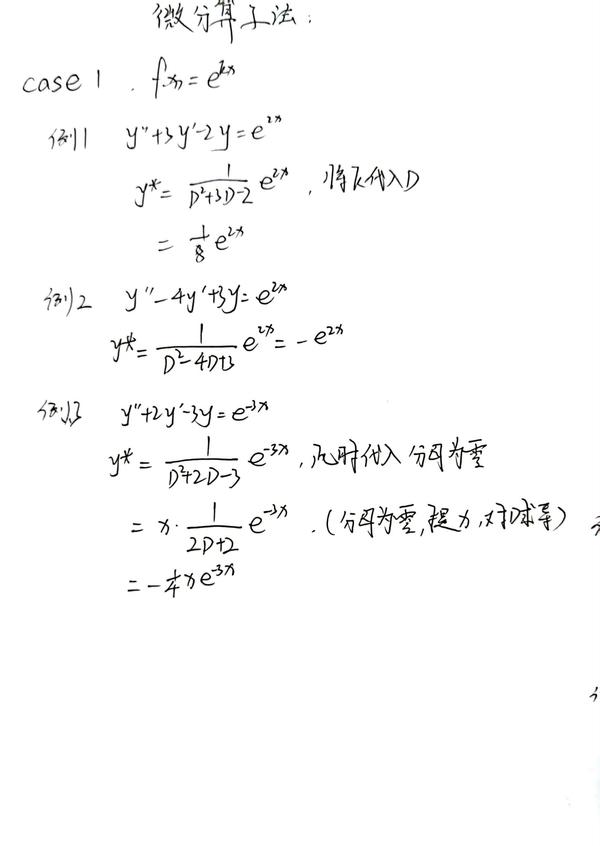 微分算子法:
case 1. f(x)=e^{kx}
例1 y''+3y'-2y=e^{2x}
y*= \frac{1}{D²+3D-2} e^{2x}, 将k代入D
= \frac{1}{8} e^{2x}
例2 y''-4y'+3y=e^{2x}
y*= \frac{1}{D²-4D+3} e^{2x}= -e^{2x}
例3 y''+2y'-3y=e^{-3x}
y*= \frac{1}{D²+2D-3} e^{-3x}, 此时代入分母为零
= x· \frac{1}{2D+2} e^{-3x}. (分母为零,提x,对D求导)
= -\frac{1}{4}xe^{-3x}